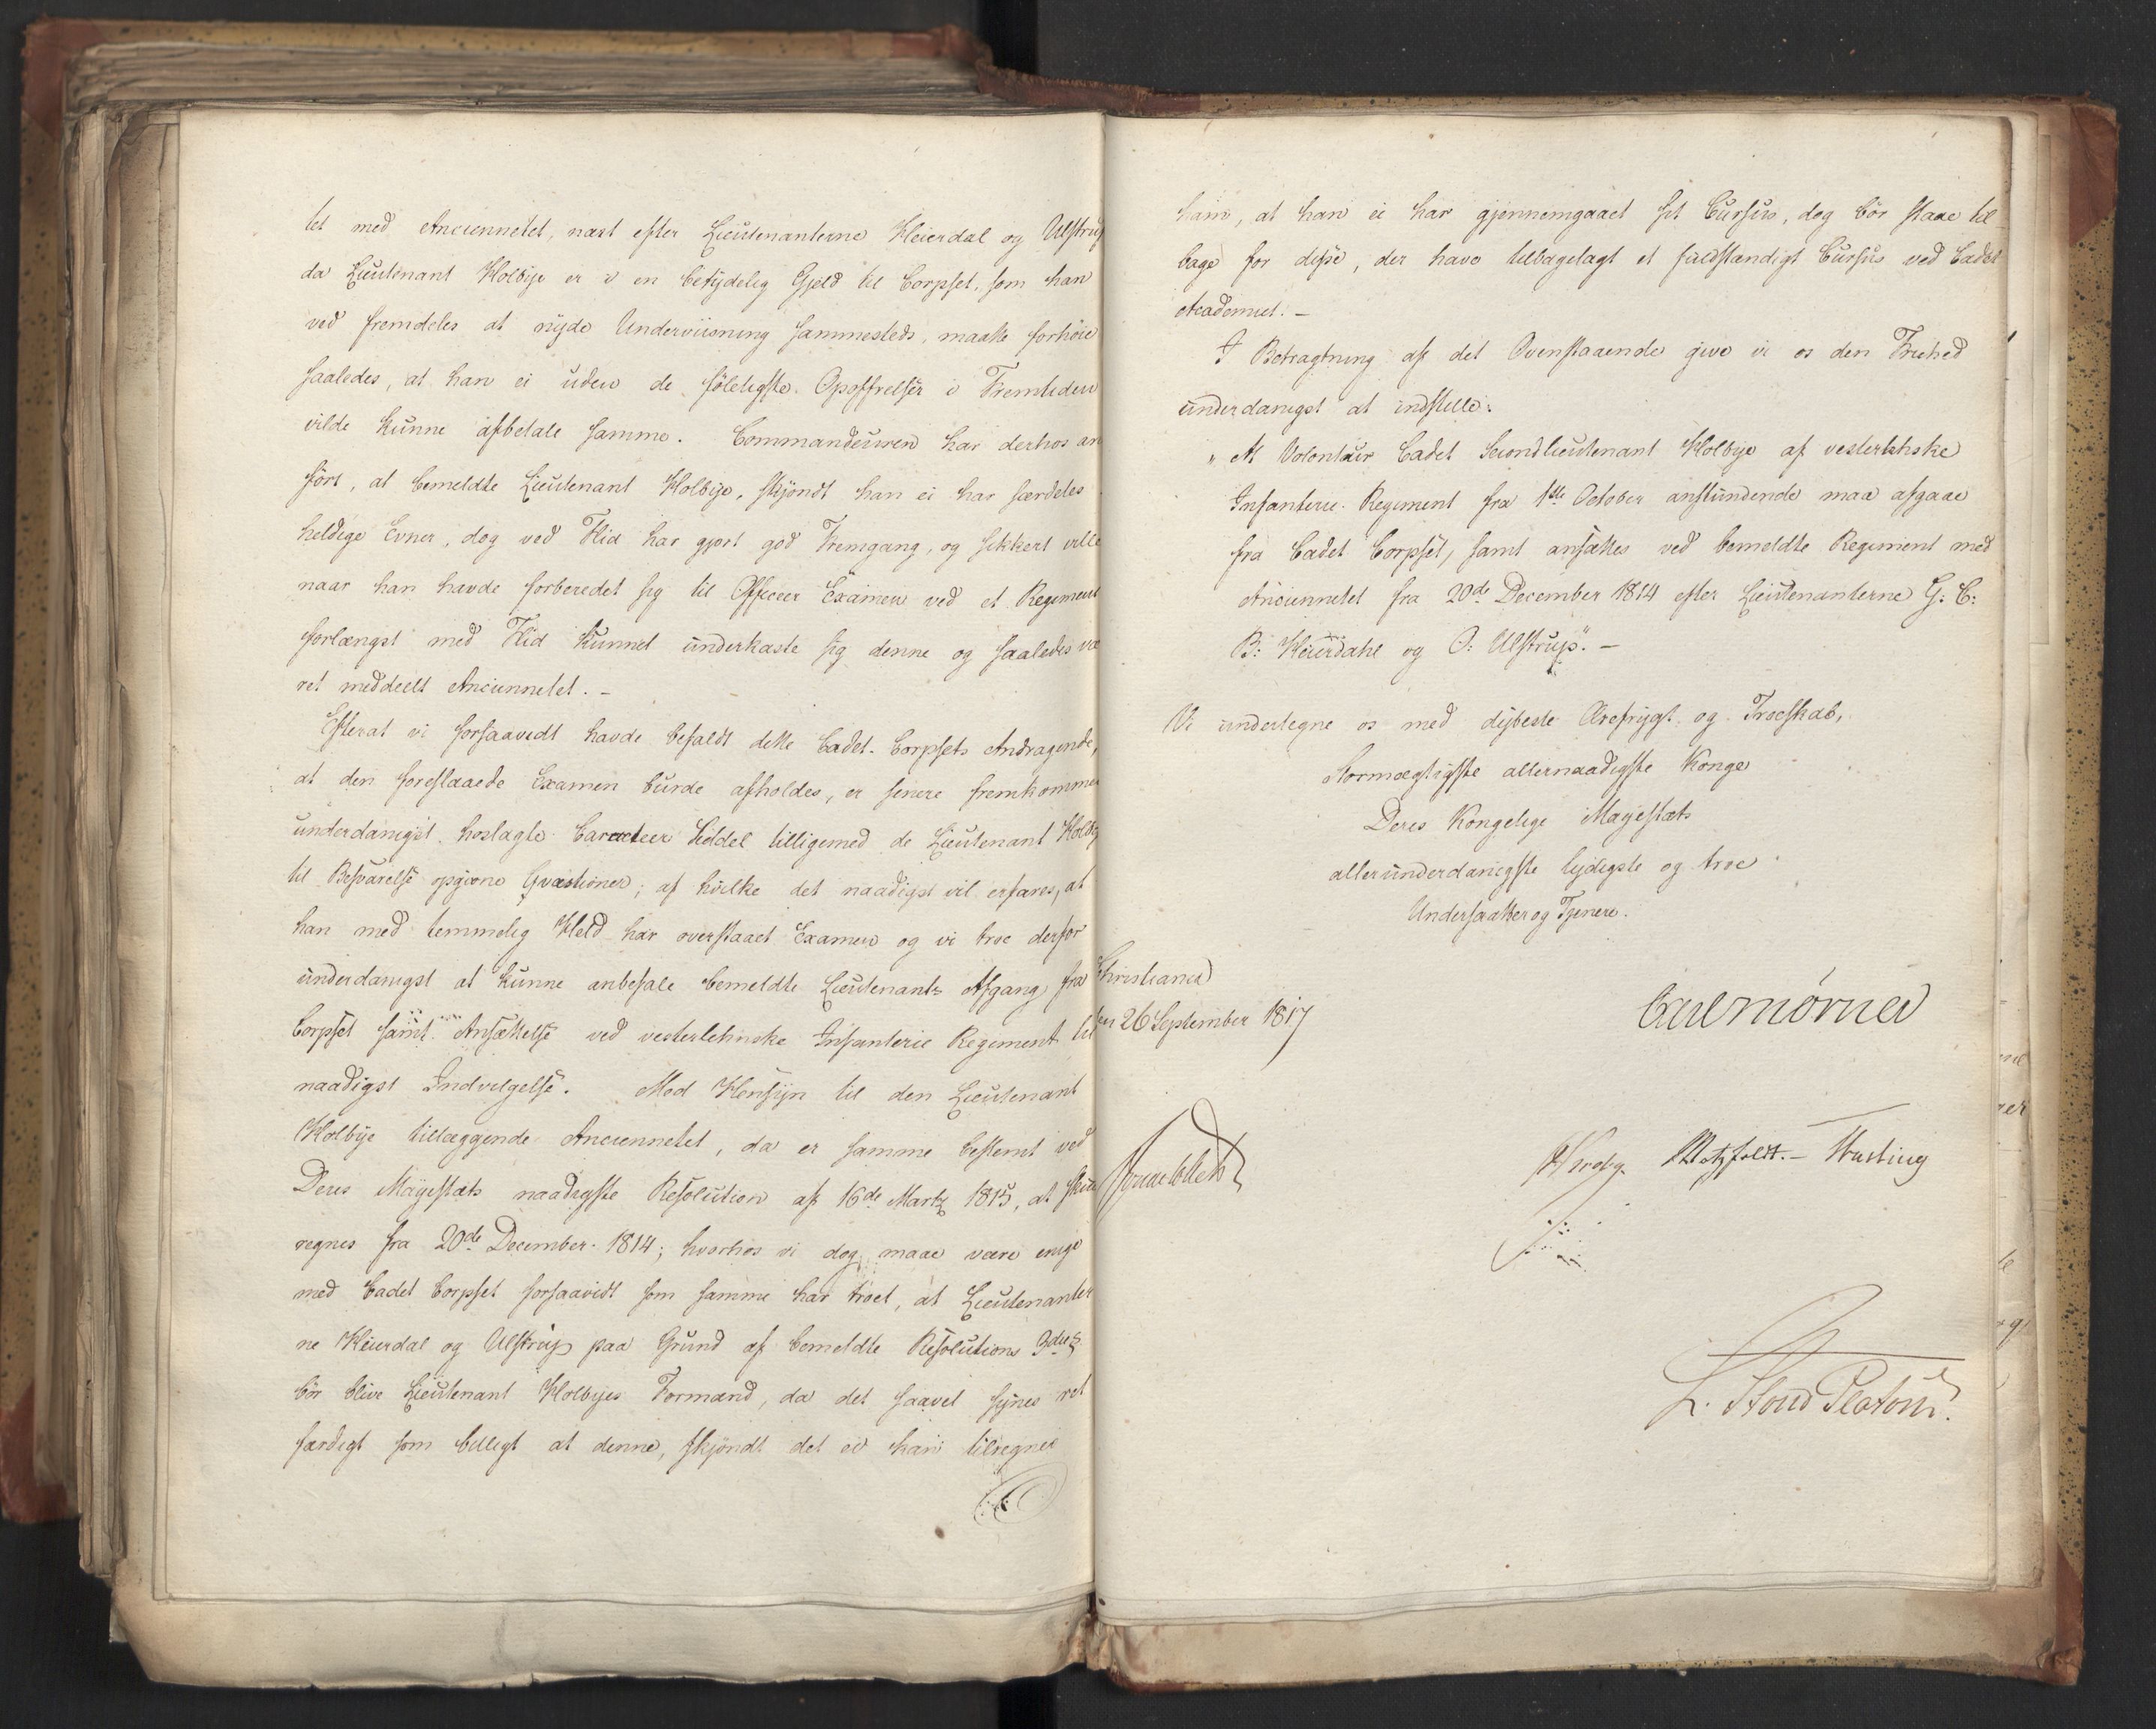 tet med Anciennetet, næst efter Lieutenanterne Heierdal og Ulstrup
da Lieutenant Holbye er i en betydelig Gjeld til Corpset, som han
ved fremdeles at nyde Underviisning sammesteds, maatte forhöie
saaledes, at han ei uden de föleligste Opoffrelser i Fremtiden
vilde kunne afbetale samme. Commandeuren har derhos an
fört, at bemeldte Lieutenant Holbye, skjöndt han ei har særdeles
heldige Evner, dog ved Flid har gjort god Fremgang, og sikkert ville
naar han havde forberedet sig til Officeer Examen ved et Regiment
forlængst med Flid kunnet underkaste sig denne og saaledes væ
ret meddeelt Anciennetet. –
Efterat vi forsaavidt havde befaldt dette Cadet-Corpsets Andragende,
at den foreslaaede Examen burde afholdes, er senere fremkommen
underdanigst hoslagte Caracteer Seddel tilligemed de Lieutenant Holbye
til Besvarelse opgivne Qvæstioner; af hvilke det naadigst vil erfares, at
han med temmelig Held har overstaaet Examen og vi troe derfor
underdanigst at kunne anbefale bemeldte Lieutenants Afgang fra
Corpset samt Ansættelse ved vesterlehnske Infanterie Regiment til
naadigst Indvilgelse. Med Hensyn til den Lieutenant
Holbye tillæggende Anciennetet, da er samme bestemt ved
Deres Majestæts naadigste Resolution af 16de Martz 1815, at skulle
regnes fra 20de December 1814; hvorhos vi dog maae være enige
med Cadet Corpset forsaavidt som samme har troet, at Lieutenanter
ne Heierdal og Ulstrup paa Grund af bemeldte Resolutions
bör blive Lieutenant Holbyes Formænd, da det saavel synes ret
færdigt som billigt at denne, skjöndt det ei kan tilregnes
ham, at han ei har gjennemgaaet sit Cursus, dog bör staae til
bage for disse, der have tilbagelagt et fuldstændigt Cursus ved Cadet
Academiet. –
I Betragtning af det Ovenstaaende give vi os den Friehed
underdanigst at indstille:
"At Volontair Cadet Secondlieutenant Holbye af vesterlehnske
Infanterie Regiment fra 1ste October anstundende maa afgaae
fra Cadet Corpset, samt ansættes ved bemeldte Regiment med
Anciennetet fra 20de December 1814 efter Lieutenanterne G: C:
B: Heierdahl og O: Ulstrup". –
Vi undertegne os med dybeste Ærefrygt og Troeskab,
Stormægtigste allernaadigste Konge
Deres Kongelige Majestæts
allerunderdanigste lydigste og troe
Undersaatter og Tjenere.
Christiania
den 26 September 1817
Carl Mörner
Sommerhielm
Krogh. Motzfeldt. – Thustrup
L. Stoud Platou.